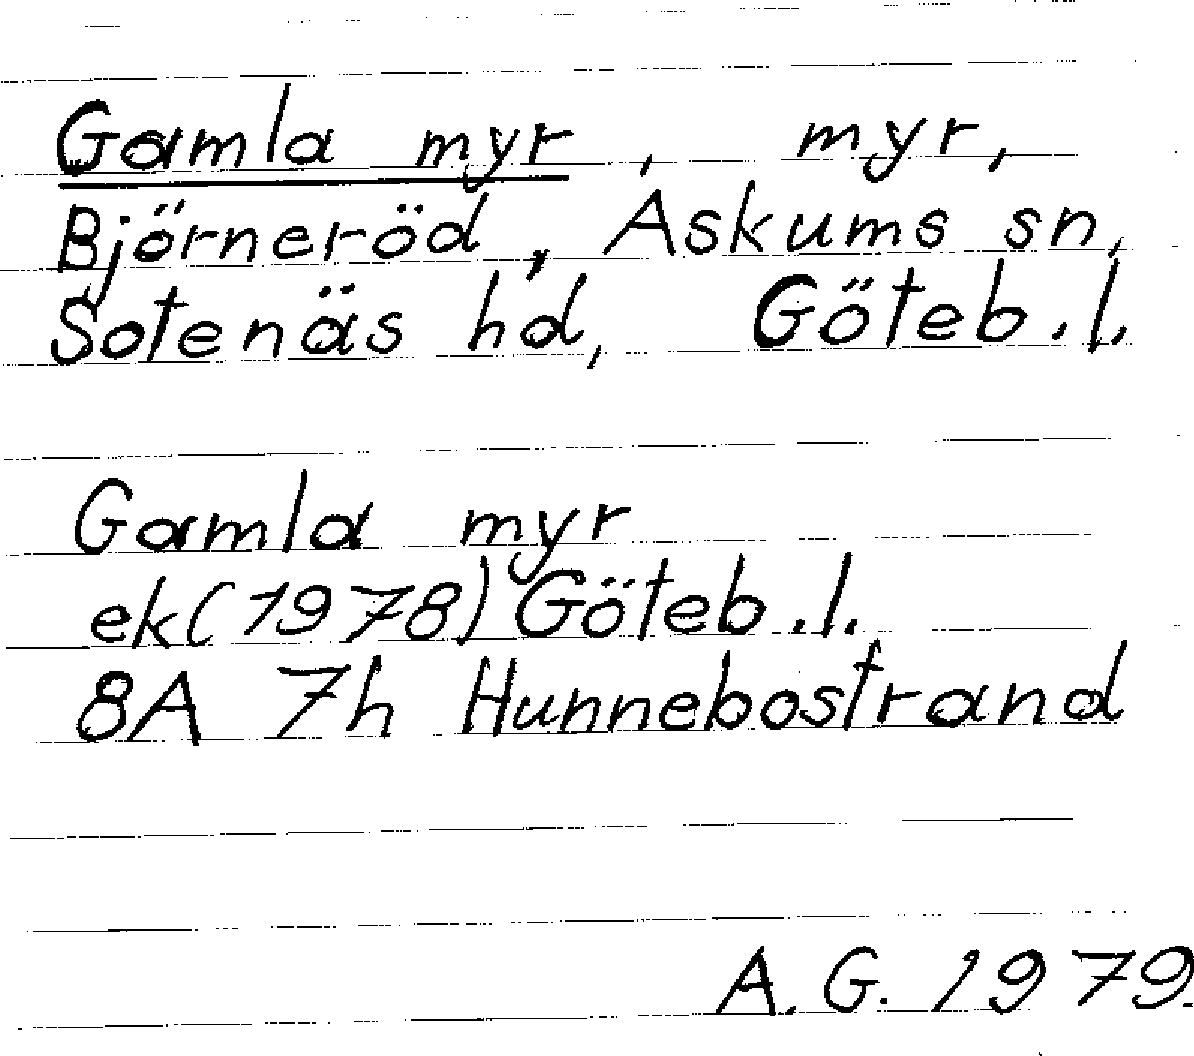 Gamla myr, myr,
Björneröd, Askums sn,
Sotenäs hd, Göteb.l.
Gamla myr
ek(1978) Göteb.l.
8A 7h Hunnebostrand
A.G. 1979.